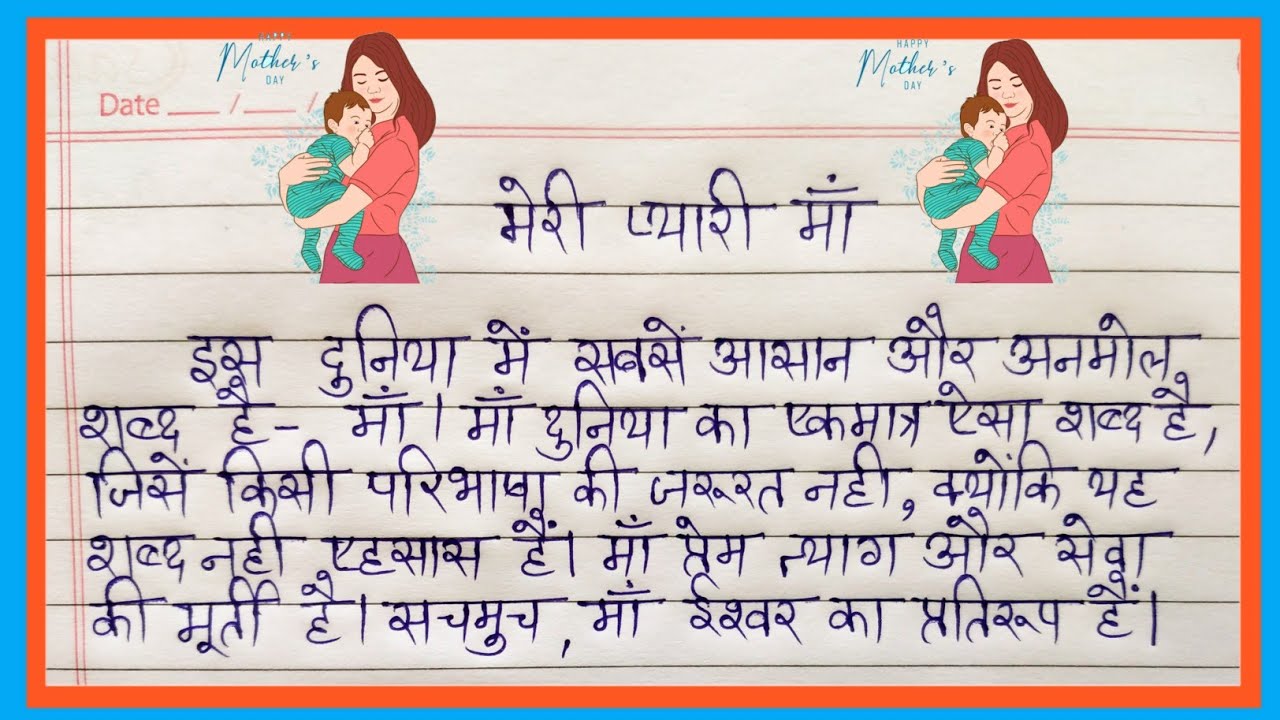 HAPPY
Mother's
DAY
HAPPY
Mother's
DAY
Date ___/___/
मेरी प्यारी माँ
इस दुनिया में सबसें आसान और अनमोल
शब्द है- माँ। माँ दुनिया का एकमात्र ऐसा शब्द है,
जिसें किसी परिभाषा की जरूरत नही, क्योंकि यह
शब्द नही एहसास हैं। माँ प्रेम त्याग और सेवा
की मूर्ती है। सचमुच, माँ ईश्वर का प्रतिरूप हैं।